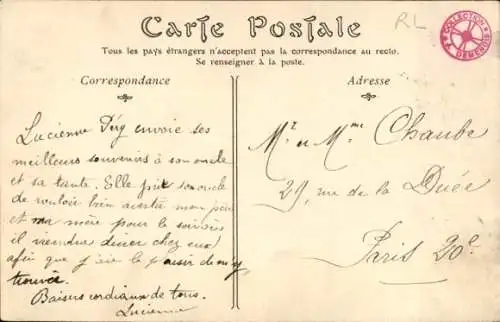 Carte Postale
RL
COLLECTION
Tous les pays étrangers n'acceptent pas la correspondance au recto.
Se renseigner à la poste.
Correspondance
Lucienne Péry envoie ses
meilleurs souvenirs à son oncle
et sa tante. Elle prie son oncle
de vouloir bien avertir mon père
et ma mère pour le
il viendra diner chez eux
afin que j'aie le plaisir de m'y
trouver.
Baisers cordiaux de tous.
Lucienne
Adresse
Mr et Mme Chaube
29, rue de la Duée
Paris 20e